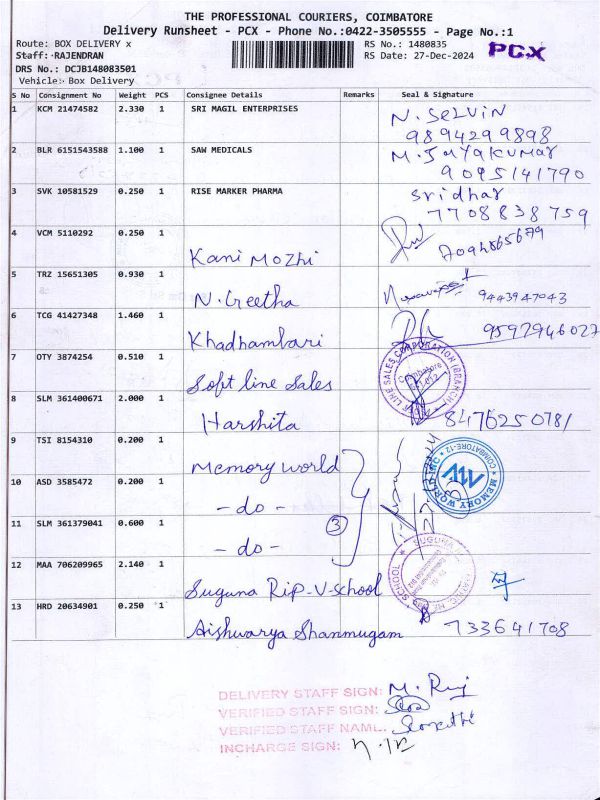 THE PROFESSIONAL COURIERS, COIMBATORE
Delivery Runsheet - PCX - Phone No.:0422-3505555 - Page No.:1
Route: BOX DELIVERY x RS No.: 1480835 PCX
Staff: RAJENDRAN RS Date: 27-Dec-2024
DRS No.: DCJB148083501
Vehicle: Box Delivery
S No Consignment No Weight PCS Consignee Details Remarks Seal & Signature
1 KCM 21474582 2.330 1 SRI MAGIL ENTERPRISES N. Selvin
9894299898
2 BLR 6151543588 1.100 1 SAW MEDICALS M. Jayakumar
9095141790
3 SVK 10581529 0.250 1 RISE MARKER PHARMA Sridhar
7708838759
4 VCM 5110292 0.250 1
Kani Mozhi
5 TRZ 15651305 0.930 1
N. Geetha 9443947043
6 TCG 41427348 1.460 1
Khadhambari 9597946027
7 OTY 3874254 0.510 1
Soft line Sales
LINE SALES CORPORATION (BRANCH)
Coimbatore
8 SLM 361400671 2.000 1
Harshita 8476250781
9 TSI 8154310 0.200 1
Memory world
MEMORY WORLD INC COIMBATORE-12
10 ASD 3585472 0.200 1
- do -
11 SLM 361379041 0.600 1 3
- do -
12 MAA 706209965 2.140 1
Suguna Rip-V-School
SUGUNA SCHOOL
13 HRD 20634901 0.250 1
Aishwarya Shanmugam 733641708
DELIVERY STAFF SIGN: M. Raj
VERIFIED STAFF SIGN:
VERIFIED STAFF NAME:
INCHARGE SIGN: